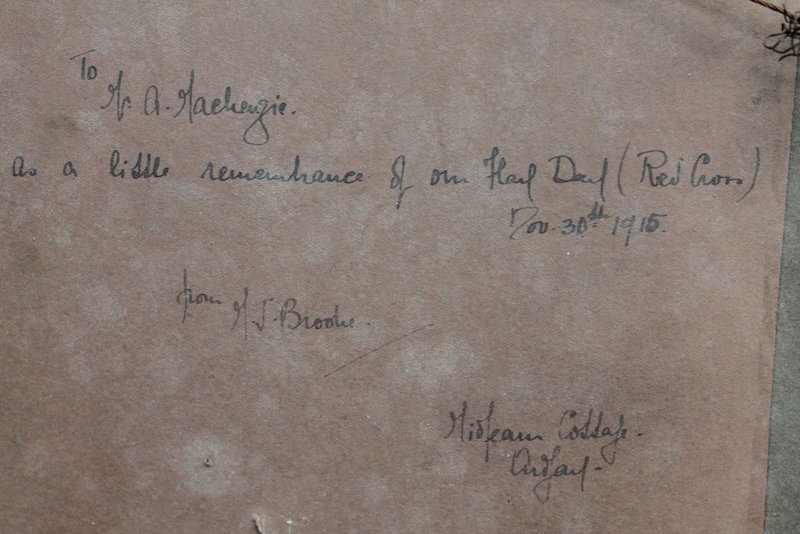 To
Mr A. Mackenzie.
as a little remembrance of our Flag Day (Red Cross)
Nov. 30th 1915.
from M J. Brooke.
Midfearn Cottage.
Ardgay.